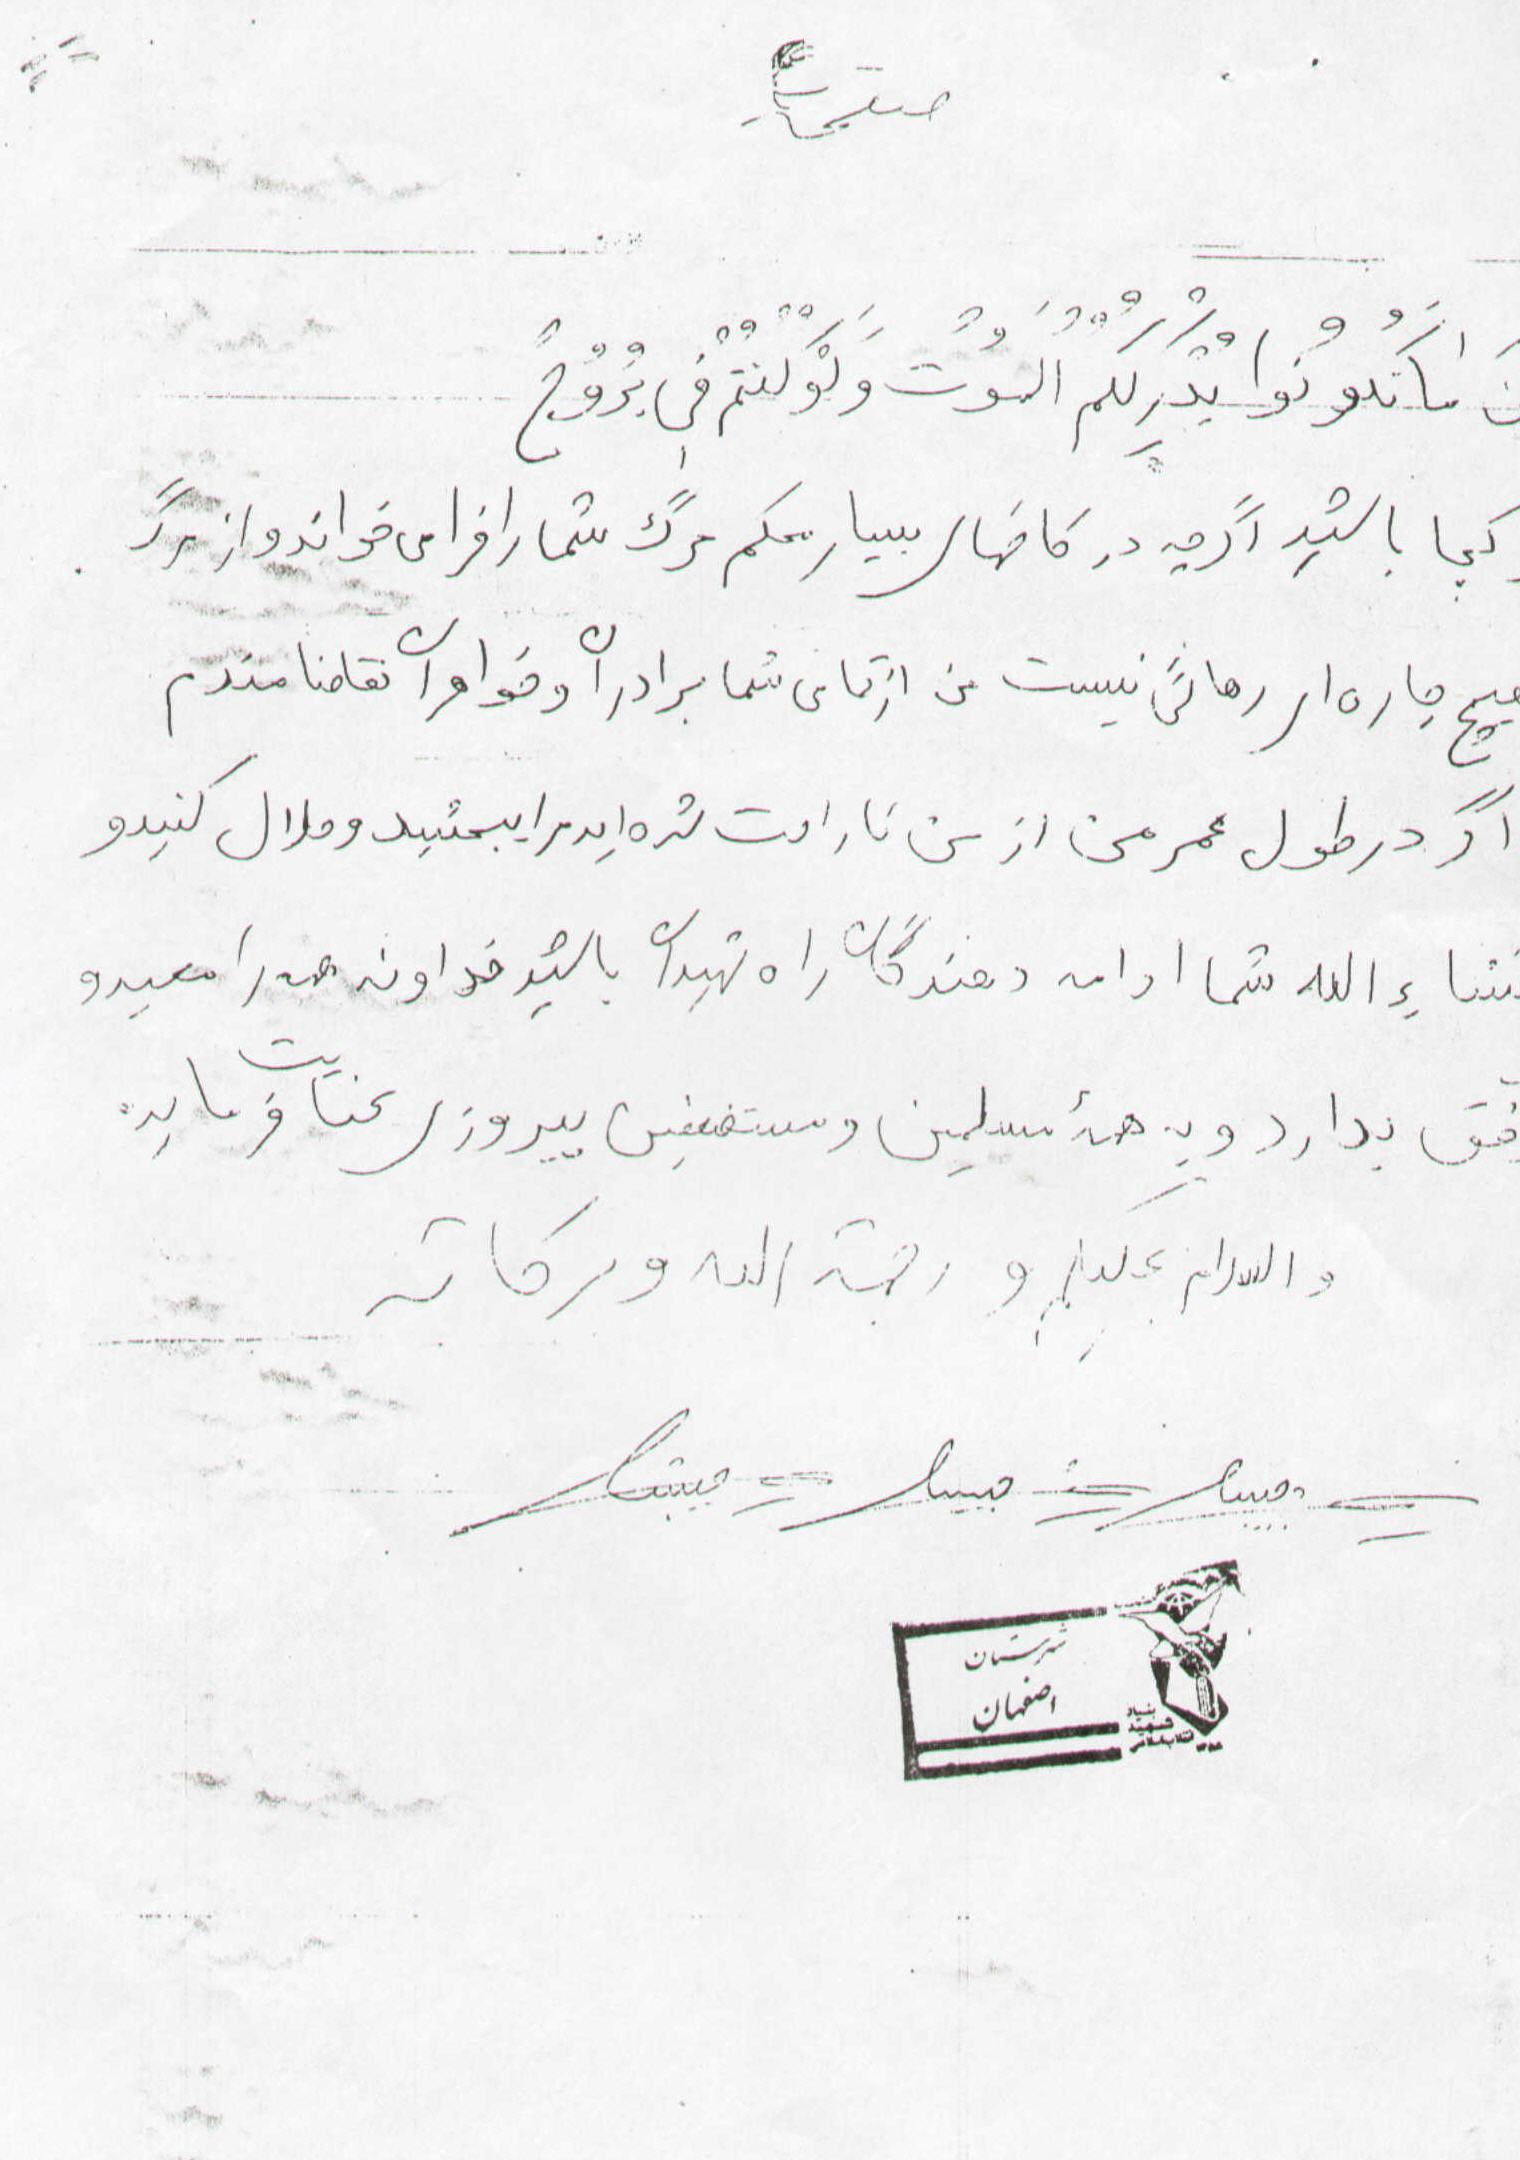 ما تَكُونُوا يُدْرِكُكُمُ الْمَوْتُ وَلَوْ كُنْتُمْ فِي بُرُوُجٍ
کجا باشید اگرچه در کاخهای بسیار محکم مرگ شما را فرا می خواند و از مرگ
هیچ چاره ای رهائی نیست من از تمامی شما برادران و خواهران تقاضا مندم
اگر در طول عمر من از من ناراحت شده اید مرا ببخشید و حلال کنید و
شما ادامه دهندگان راه شهیدان باشید خداوند همه را موید و
بدارد و به همهٔ مسلمین و مستضعفین پیروزی عنایت فرماید.
والسلام علیکم و رحمة الله و برکاته
شهرستان
اصفهان
بنیاد
شهید
انقلاب اسلامی